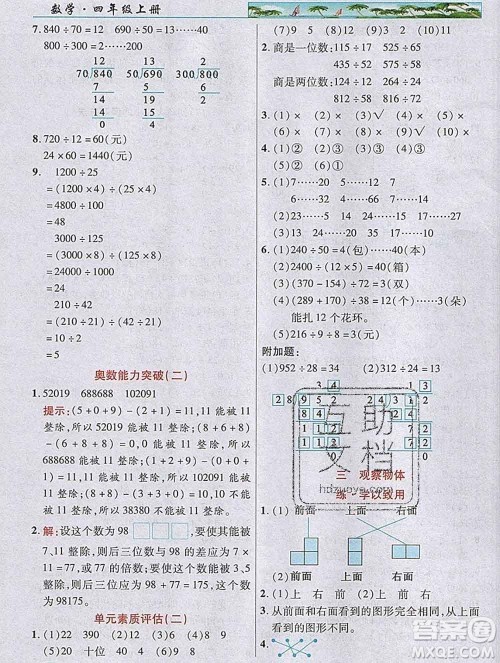 数学·四年级上册
7. 840÷70=12 690÷50=13……40
800÷300=2……200
12 13 2
70)840 50)690 300)800
7 5 6
14 19 2
14 15
0 4
8. 720÷12=60(元)
24×60=1440(元)
9. 1200÷25
=(1200×4)÷(25×4)
=4800÷100
=48
3000÷125
=(3000×8)÷(125×8)
=24000÷1000
=24
210÷42
=(210÷21)÷(42÷21)
=10÷2
=5
奥数能力突破(二)
1. 52019 688688 102091
提示:(5+0+9)-(2+1)=11,11能被11
整除,所以52019能被11整除。(6+8+
8)-(8+6+8)=0,0能被11整除,所以
688688能被11整除。(0+0+1)+11-
(1+2+9)=0,0能被11整除,所以102091
能被11整除。(3+3+0)+11-(8+8)=
1,所以38380不能被11整除。
2. 解:设这个数为98□□□,要使这个数能被
7、11整除,则后三位数与98的差应为7×
11=77的倍数,又要使这个数最小,则后
三位数为98+77=175,所以这个数为
98175。
单元素质评估(二)
1. (1)22 390 (2)32 (3)4 6 8 9
(4)205 20 十位 40 4 (5)9 (6)8
(7)9 (8)11 (9)12
2. 商是一位数:115÷17 512÷52
435÷52 575÷58
商是两位数:312÷31 645÷63
812÷26 816÷24
3. (1)× (2)× (3)√ (4)× (5)×
4. (1)② (2)③ (3)② (4)①③
(5)② (6)①
5. (1)7……20 5……12 4……37
6……7 4……17
(2)23……14 30……17 22……14
13……20 40……17
6. (1)240÷50=4(包)……40(本)
(2)2400÷40=60(箱)
(3)(437-216)÷72=3(双)
(4)(289+170)÷38=12……3(朵)
能扎12个花环。
(5)216÷9÷8=3(元)
附加题:
(1)952÷28=34 (2)312÷24=13
三 观察物体
练·学以致用
1. (1)前面 上面 右面
(2)前面 上面 右面
3. 从前面和右面看到的图形完全相同,从上
面看到的图形不同。
4.
互助
文档
hdzuoye.com
答案圈
MXQE.COM